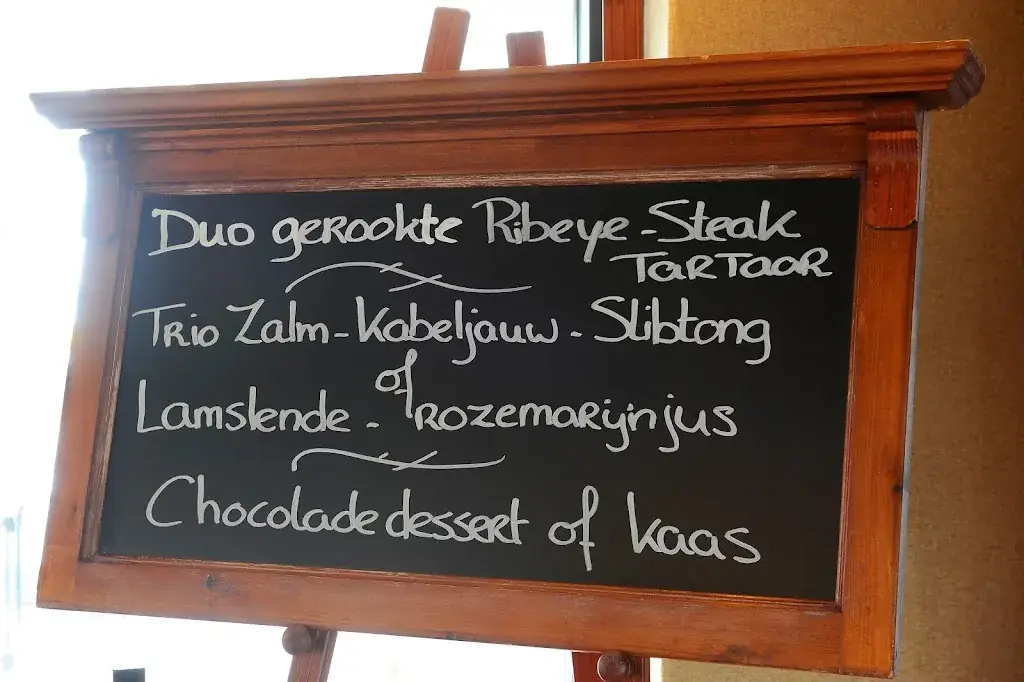 Duo gerookte Ribeye - Steak
Tartaar
Trio Zalm - Kabeljauw - Slibtong
of
Lamslende - rozemarijnjus
Chocolade dessert of kaas